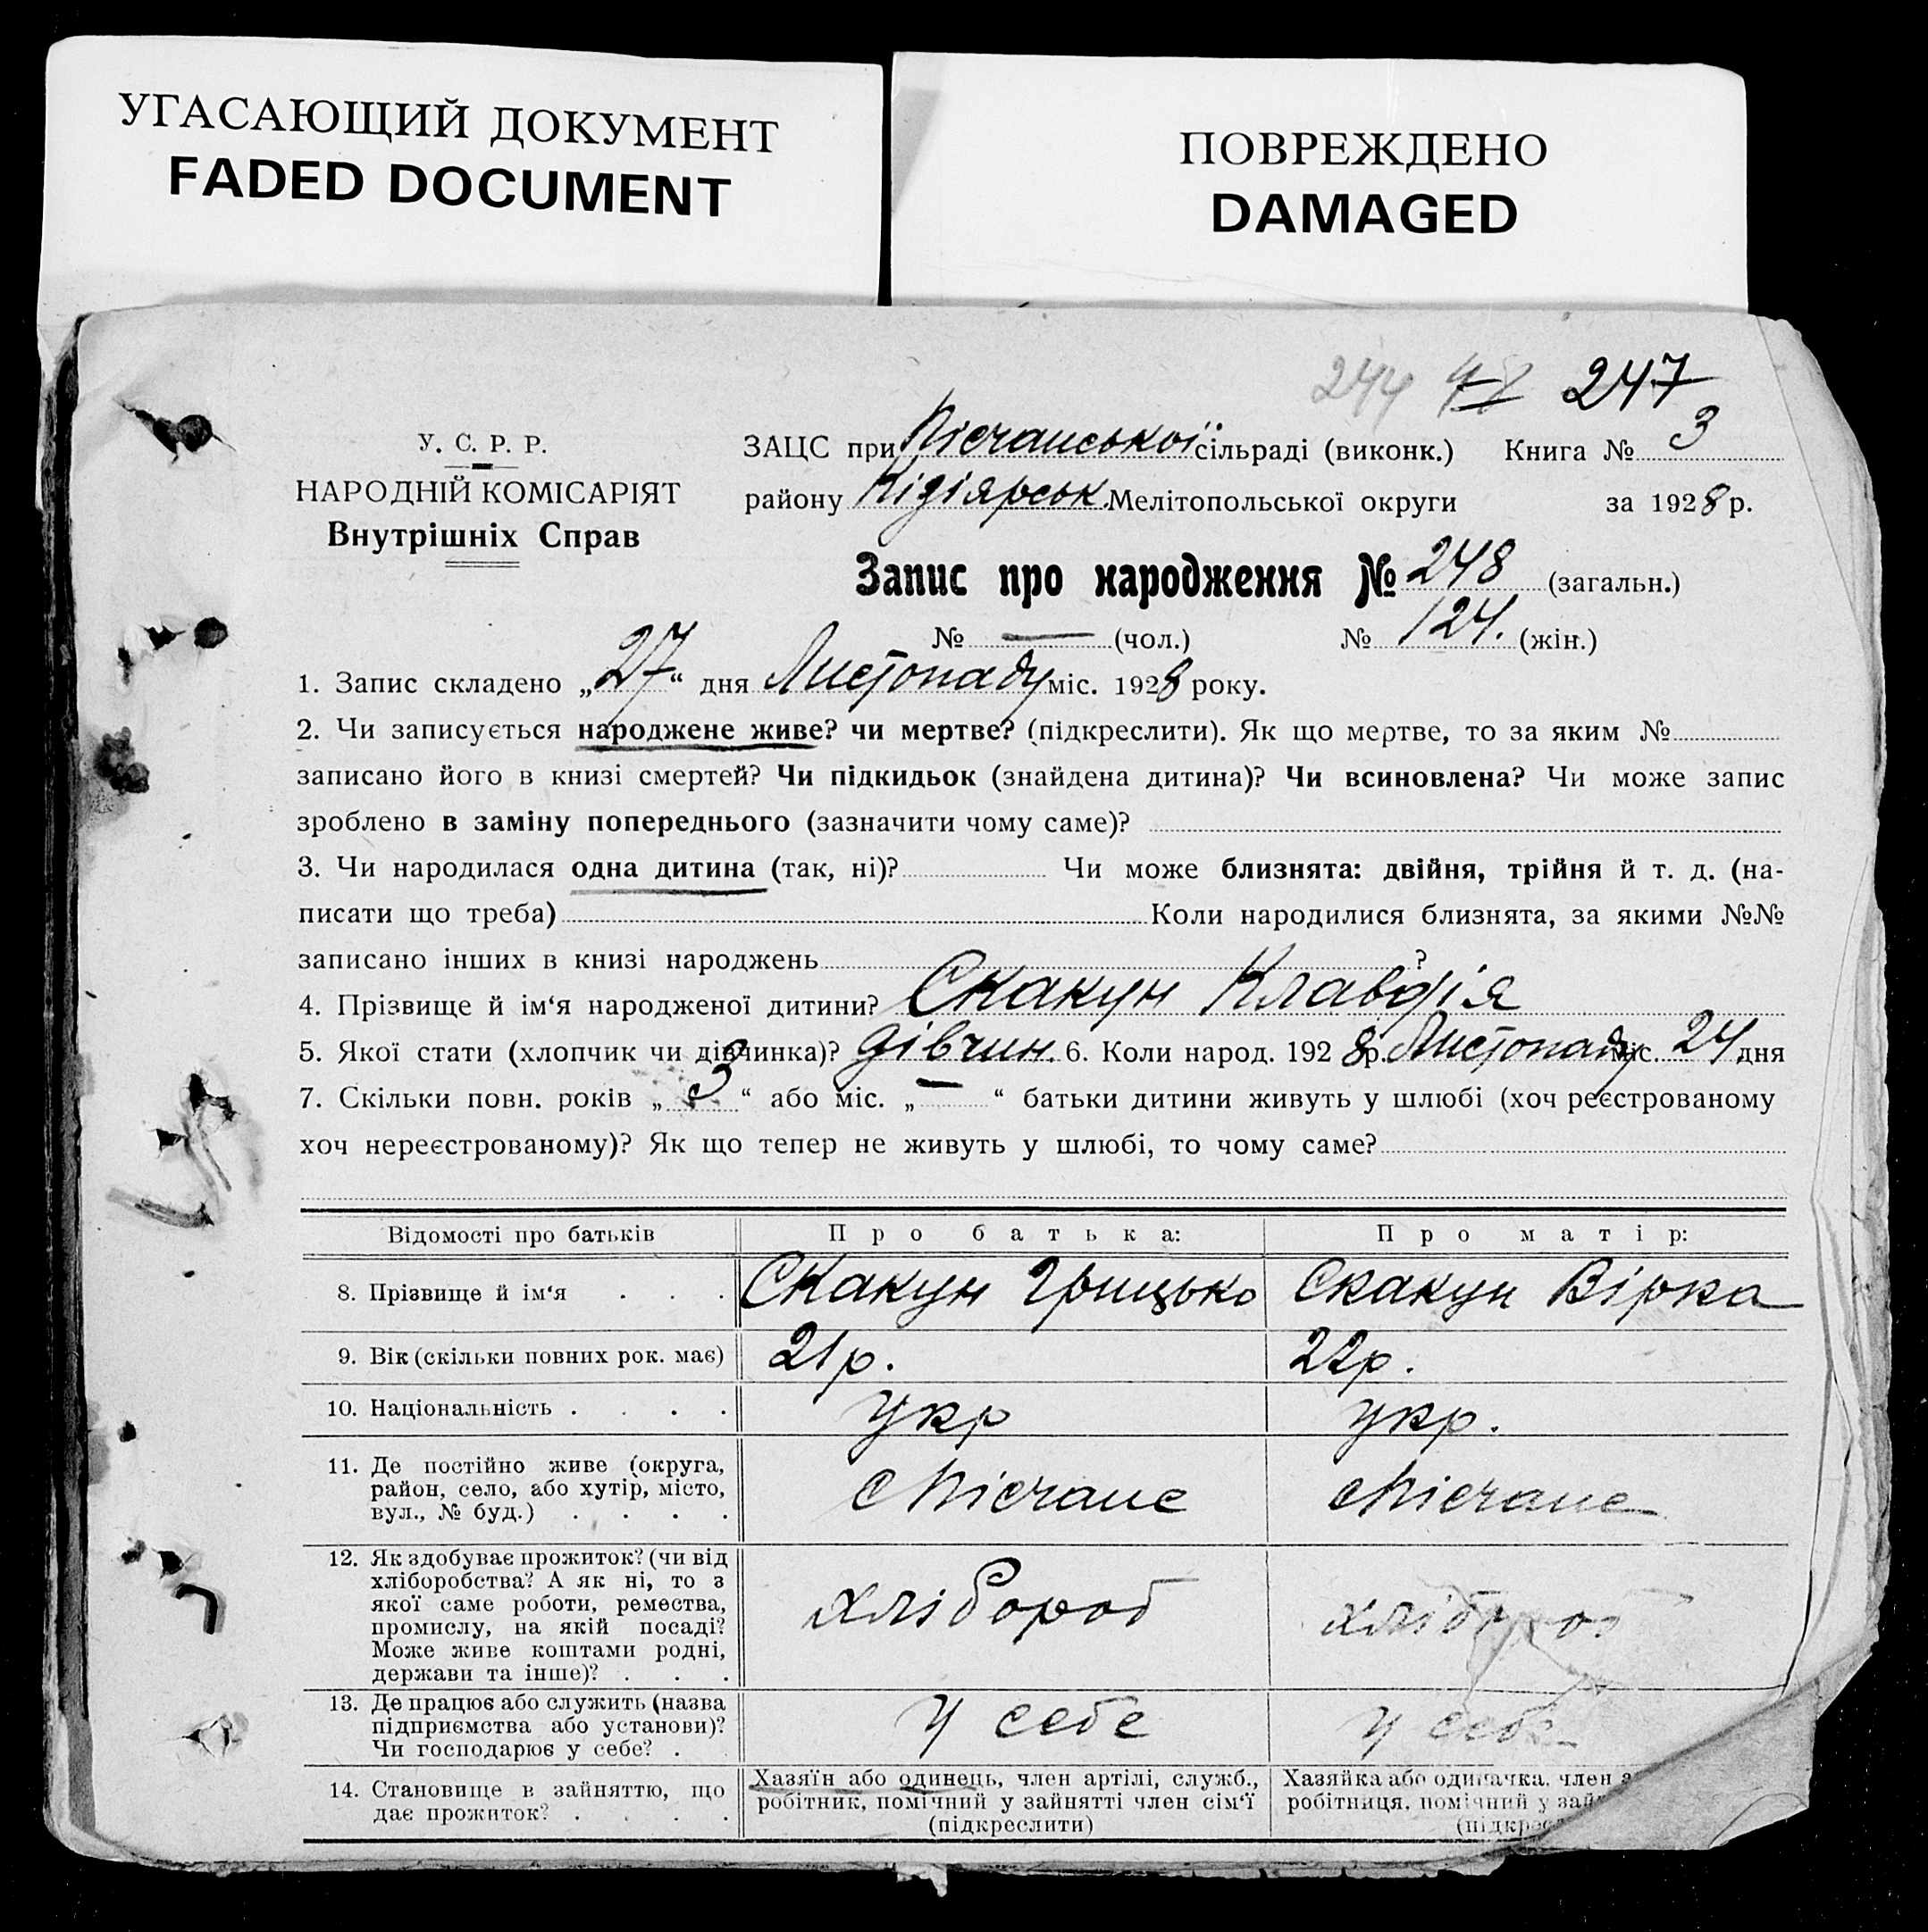 УГАСАЮЩИЙ ДОКУМЕНТ
FADED DOCUMENT
ПОВРЕЖДЕНО
DAMAGED
244 48 247
У. С. Р. Р.
НАРОДНІЙ КОМІСАРІЯТ
Внутрішніх Справ
ЗАЦС при Пісчанської сільраді (виконк.) Книга № 3
району Кізіярськ. Мелітопольської округи за 1928 р.
Запис про народження № 248 (загальн.)
№ — (чол.) № 124. (жін.)
1. Запис складено „27“ дня Листопаду міс. 1928 року.
2. Чи записується народжене живе? чи мертве? (підкреслити). Як що мертве, то за яким №
записано його в книзі смертей? Чи підкидьок (знайдена дитина)? Чи всиновлена? Чи може запис
зроблено в заміну попереднього (зазначити чому саме)?
3. Чи народилася одна дитина (так, ні)? Чи може близнята: двійня, трійня й т. д. (на-
писати що треба) Коли народилися близнята, за якими №№
записано інших в книзі народжень ?
4. Прізвище й ім‘я народженої дитини? Скакун Клавдія
5. Якої стати (хлопчик чи дівчинка)? дівчин. 6. Коли народ. 1928 р. Листопаду міс. 24 дня
7. Скільки повн. років „3“ або міс. „—“ батьки дитини живуть у шлюбі (хоч реєстрованому
хоч нереєстрованому)? Як що тепер не живуть у шлюбі, то чому саме?
Відомості про батьків
Про батька:
Про матір:
8. Прізвище й ім‘я . . .
Скакун Грицько
Скакун Вірка
9. Вік (скільки повних рок. має)
21 р.
22 р.
10. Національність . . . .
укр
укр.
11. Де постійно живе (округа,
район, село, або хутір, місто,
вул., № буд.) . . . .
с Пісчане
с Пісчане
12. Як здобуває прожиток? (чи від
хліборобства? А як ні, то з
якої саме роботи, ремества,
промислу, на якій посаді?
Може живе коштами родні,
держави та інше)? . . .
хлібороб
хлібороб
13. Де працює або служить (назва
підприємства або установи)?
Чи господарює у себе? .
у себе
у себе
14. Становище в зайняттю, що
дає прожиток? . . . .
Хазяїн або одинець, член артілі, служб.,
робітник, помічний у зайнятті член сім‘ї
(підкреслити)
Хазяйка або одиначка, член
робітниця, помічний у